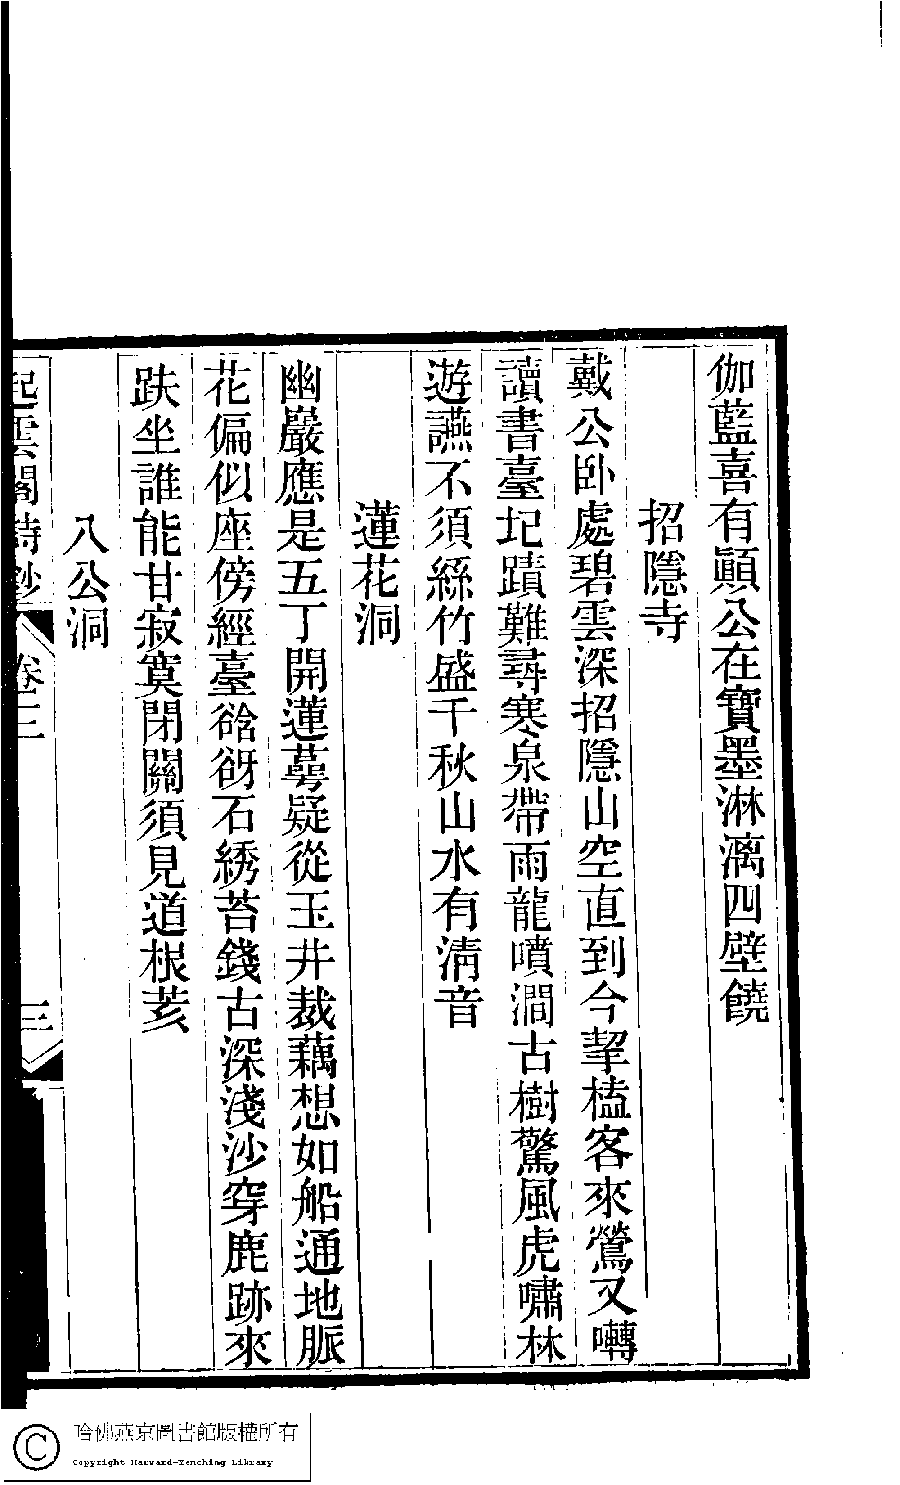 伽藍喜有顚公在寶墨淋漓四壁饒
招隱寺
戴公卧處碧雲深招隱山空直到今挈榼客來鶯又囀
讀書臺圮蹟難尋寒泉帶雨龍噴澗古樹驚風虎嘯林
遊讌不須絲竹盛千秋山水有淸音
蓮花洞
幽巖應是五丁開蓮蕚疑從玉井裁藕想如船通地脈
花偏似座傍經臺谽谺石綉苔錢古深淺沙穿鹿跡來
趺坐誰能甘寂寞閉關須見道根荄
八公洞
起雲閣詩鈔 卷三 三
哈佛燕京圖書館版權所有
Copyright Harvard-Yenching Library